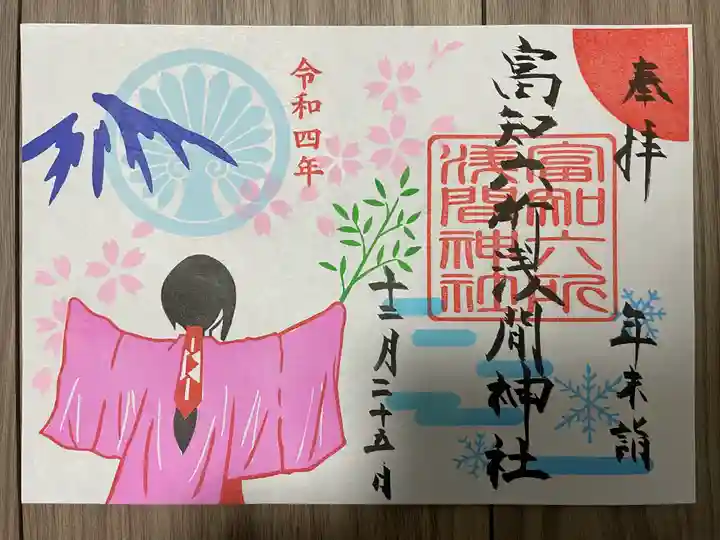 奉拝
年末詣
富知六所浅間神社
富知六所
浅間神社
令和四年
十二月二十五日